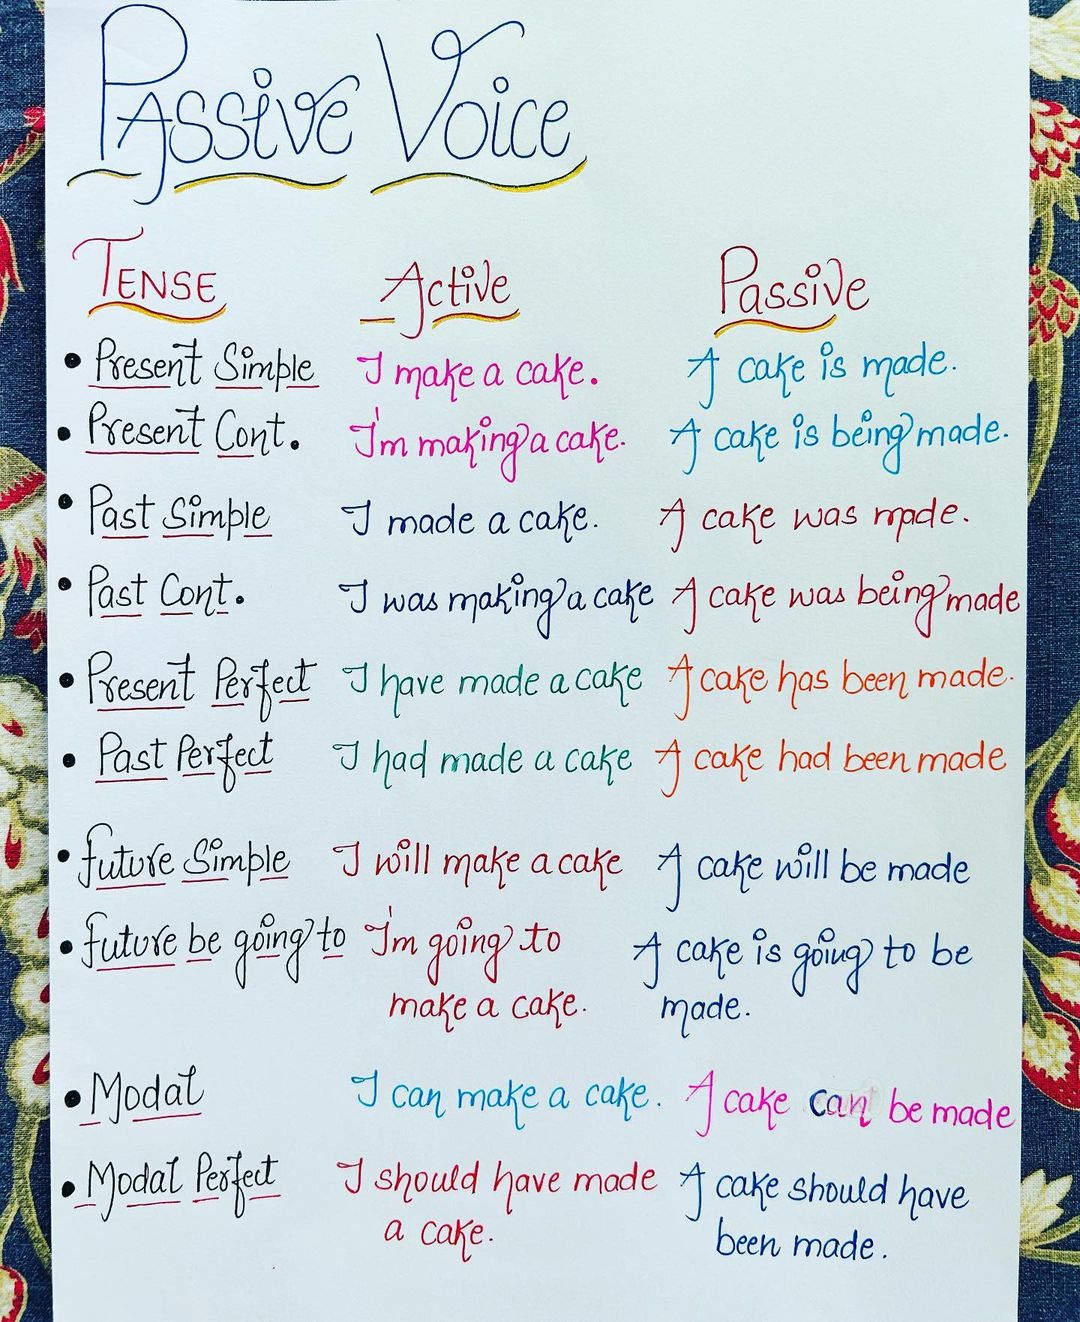 Passive Voice
Tense Active Passive
• Present Simple I make a cake. A cake is made.
• Present Cont. I'm making a cake. A cake is being made.
• Past Simple I made a cake. A cake was made.
• Past Cont. I was making a cake A cake was being made
• Present Perfect I have made a cake A cake has been made.
• Past Perfect I had made a cake A cake had been made
• Future Simple I will make a cake A cake will be made
• Future be going to I'm going to A cake is going to be
make a cake. made.
• Modal I can make a cake. A cake can be made
• Modal Perfect I should have made A cake should have
a cake. been made.